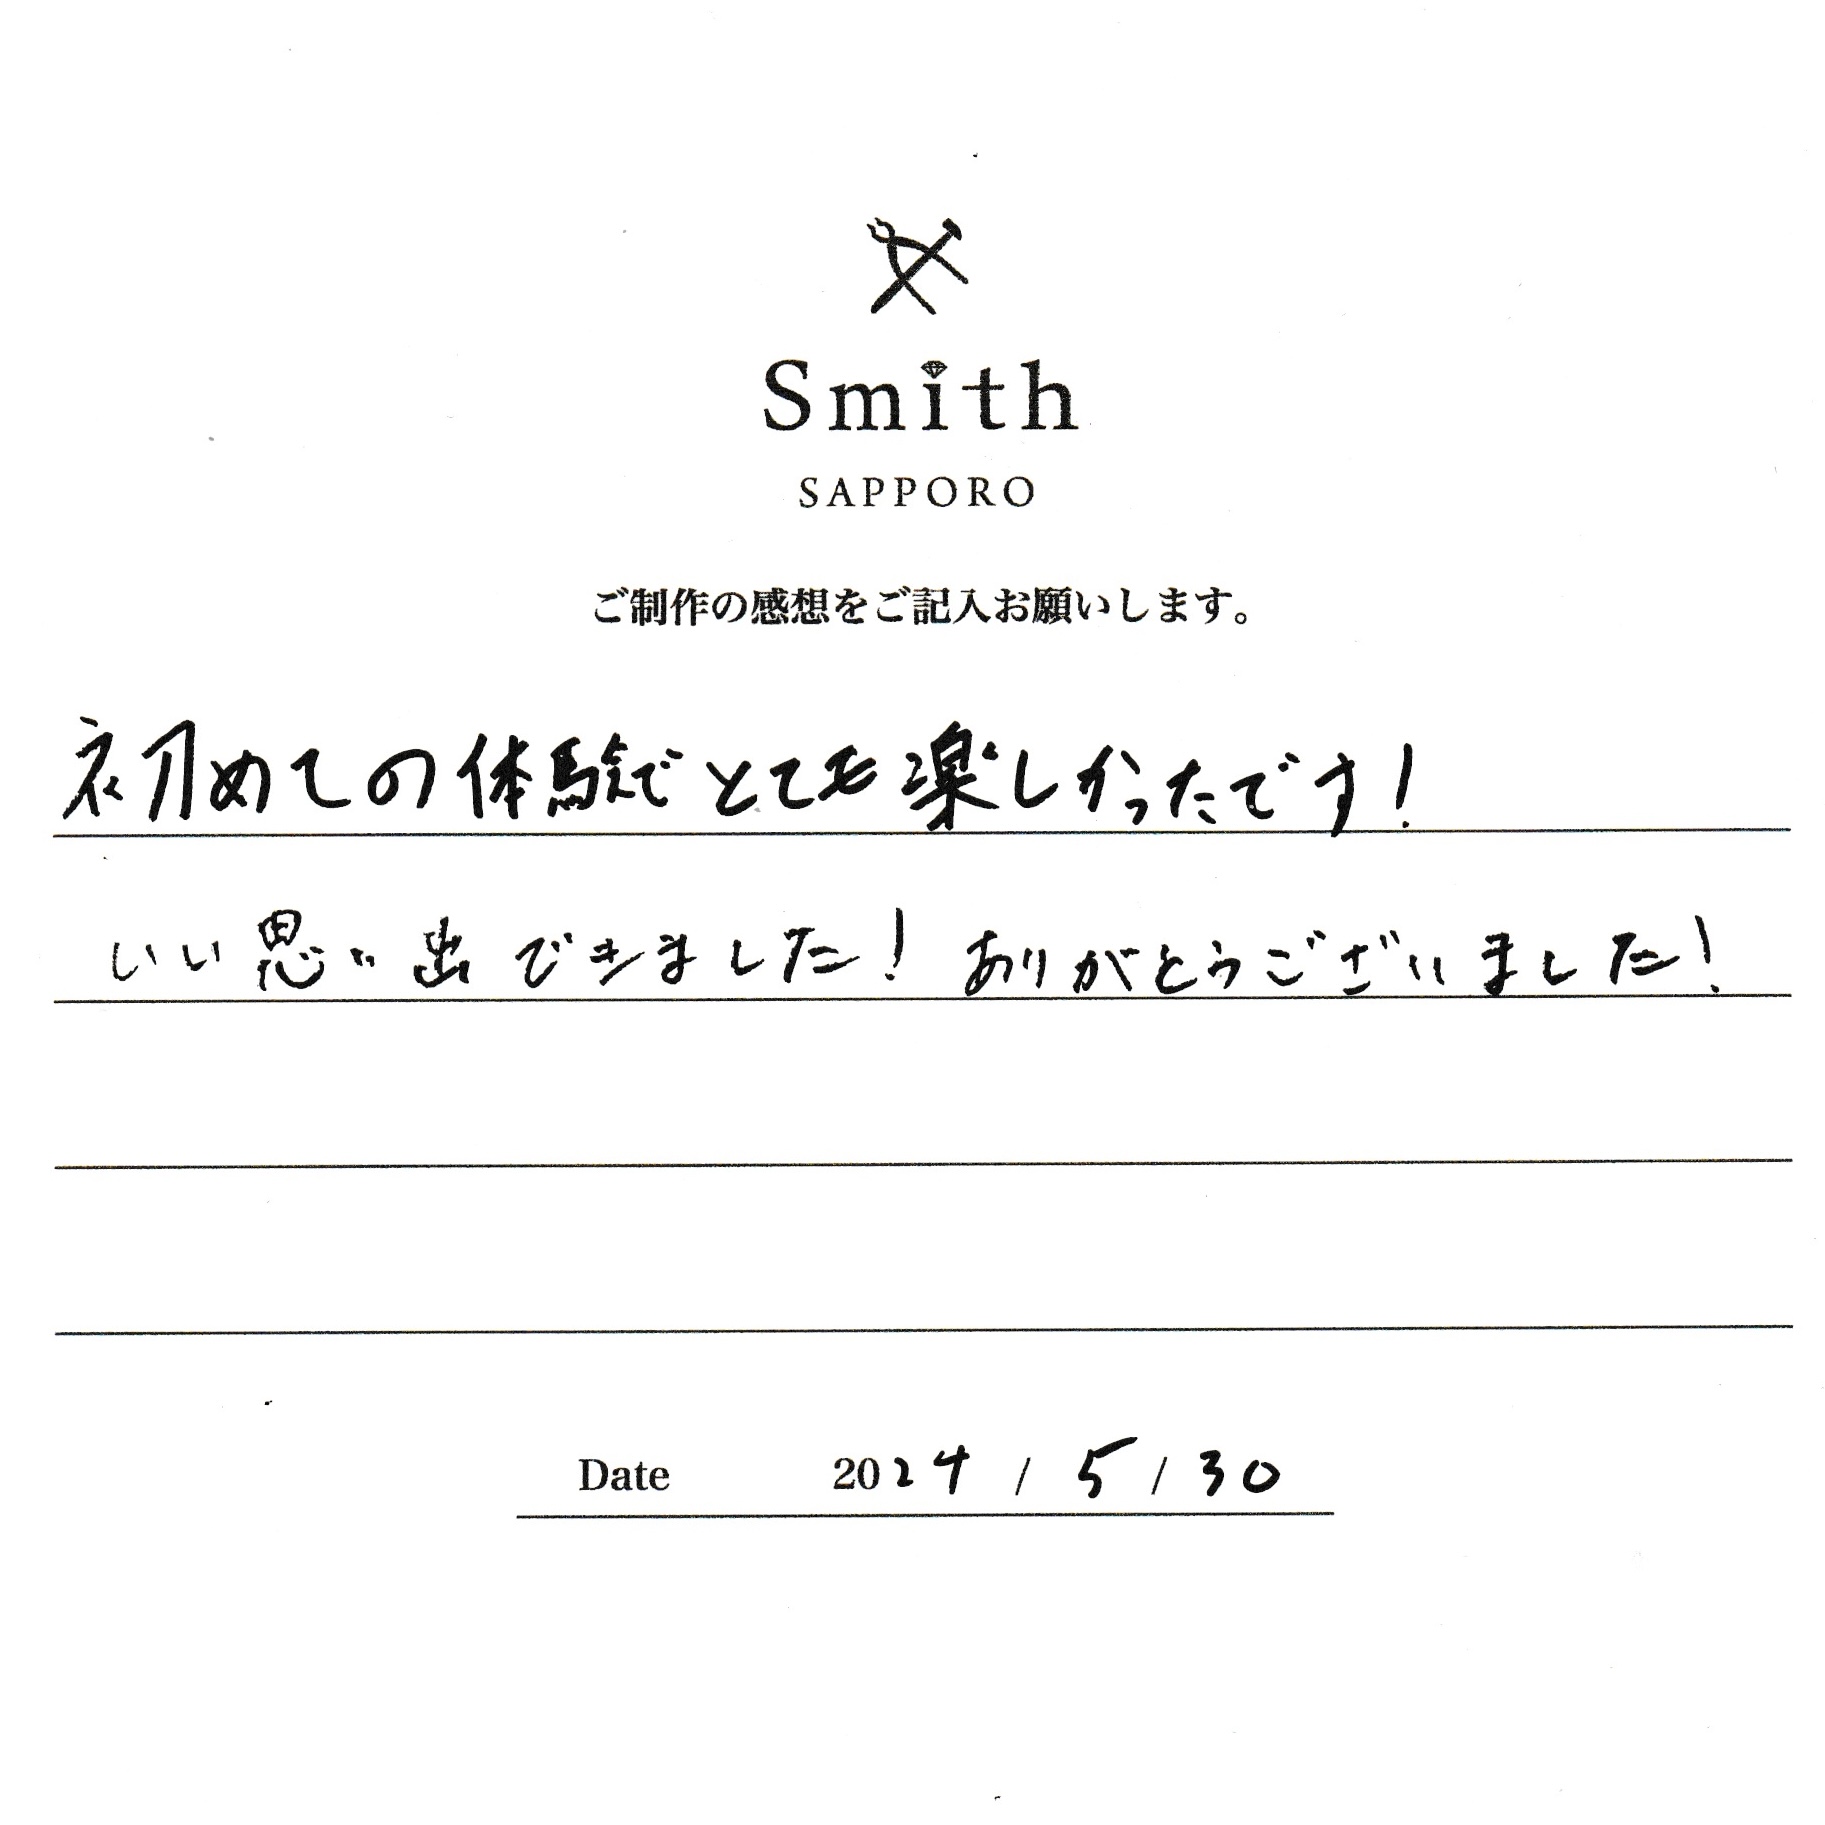 Smith
SAPPORO
ご制作の感想をご記入お願いします。
初めての体験でとても楽しかったです！
いい思い出できました！ありがとうございました！
Date 2024 / 5 / 30